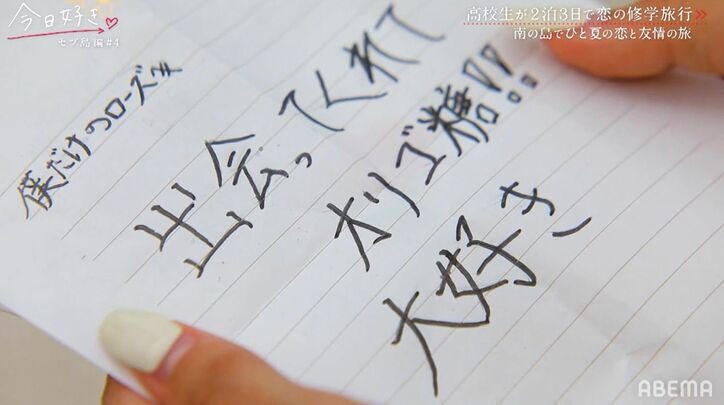 今日好き
セブ島編#4
高校生が2泊3日で恋の修学旅行»
南の島でひと夏の恋と友情の旅
僕だけのローズ
出会ってくれて
オリゴ糖!!
大好き
ABEMA